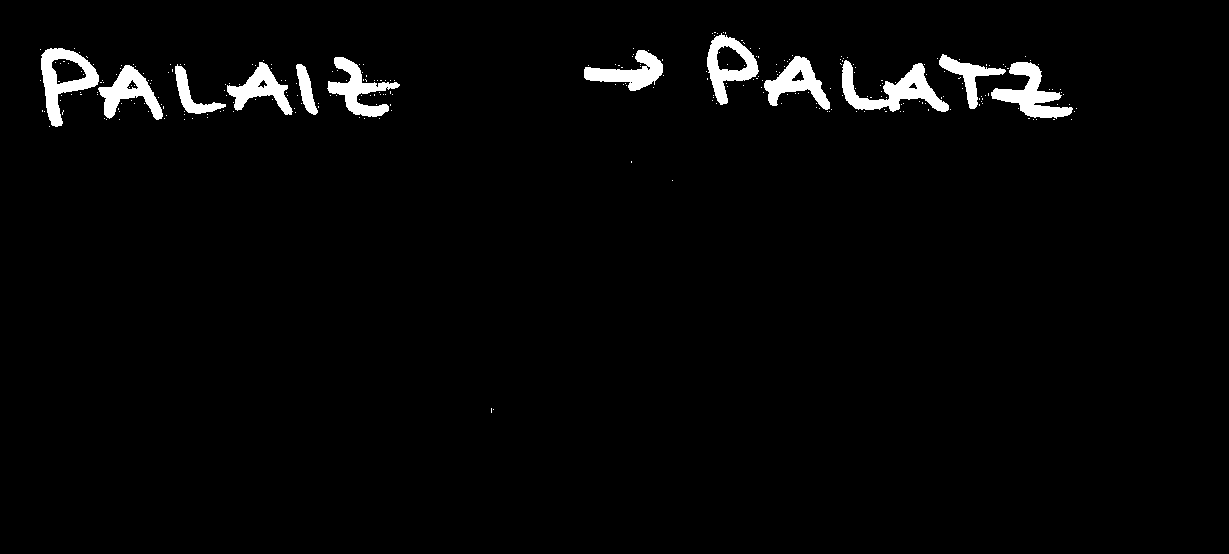 PALAIZ → PALATZ